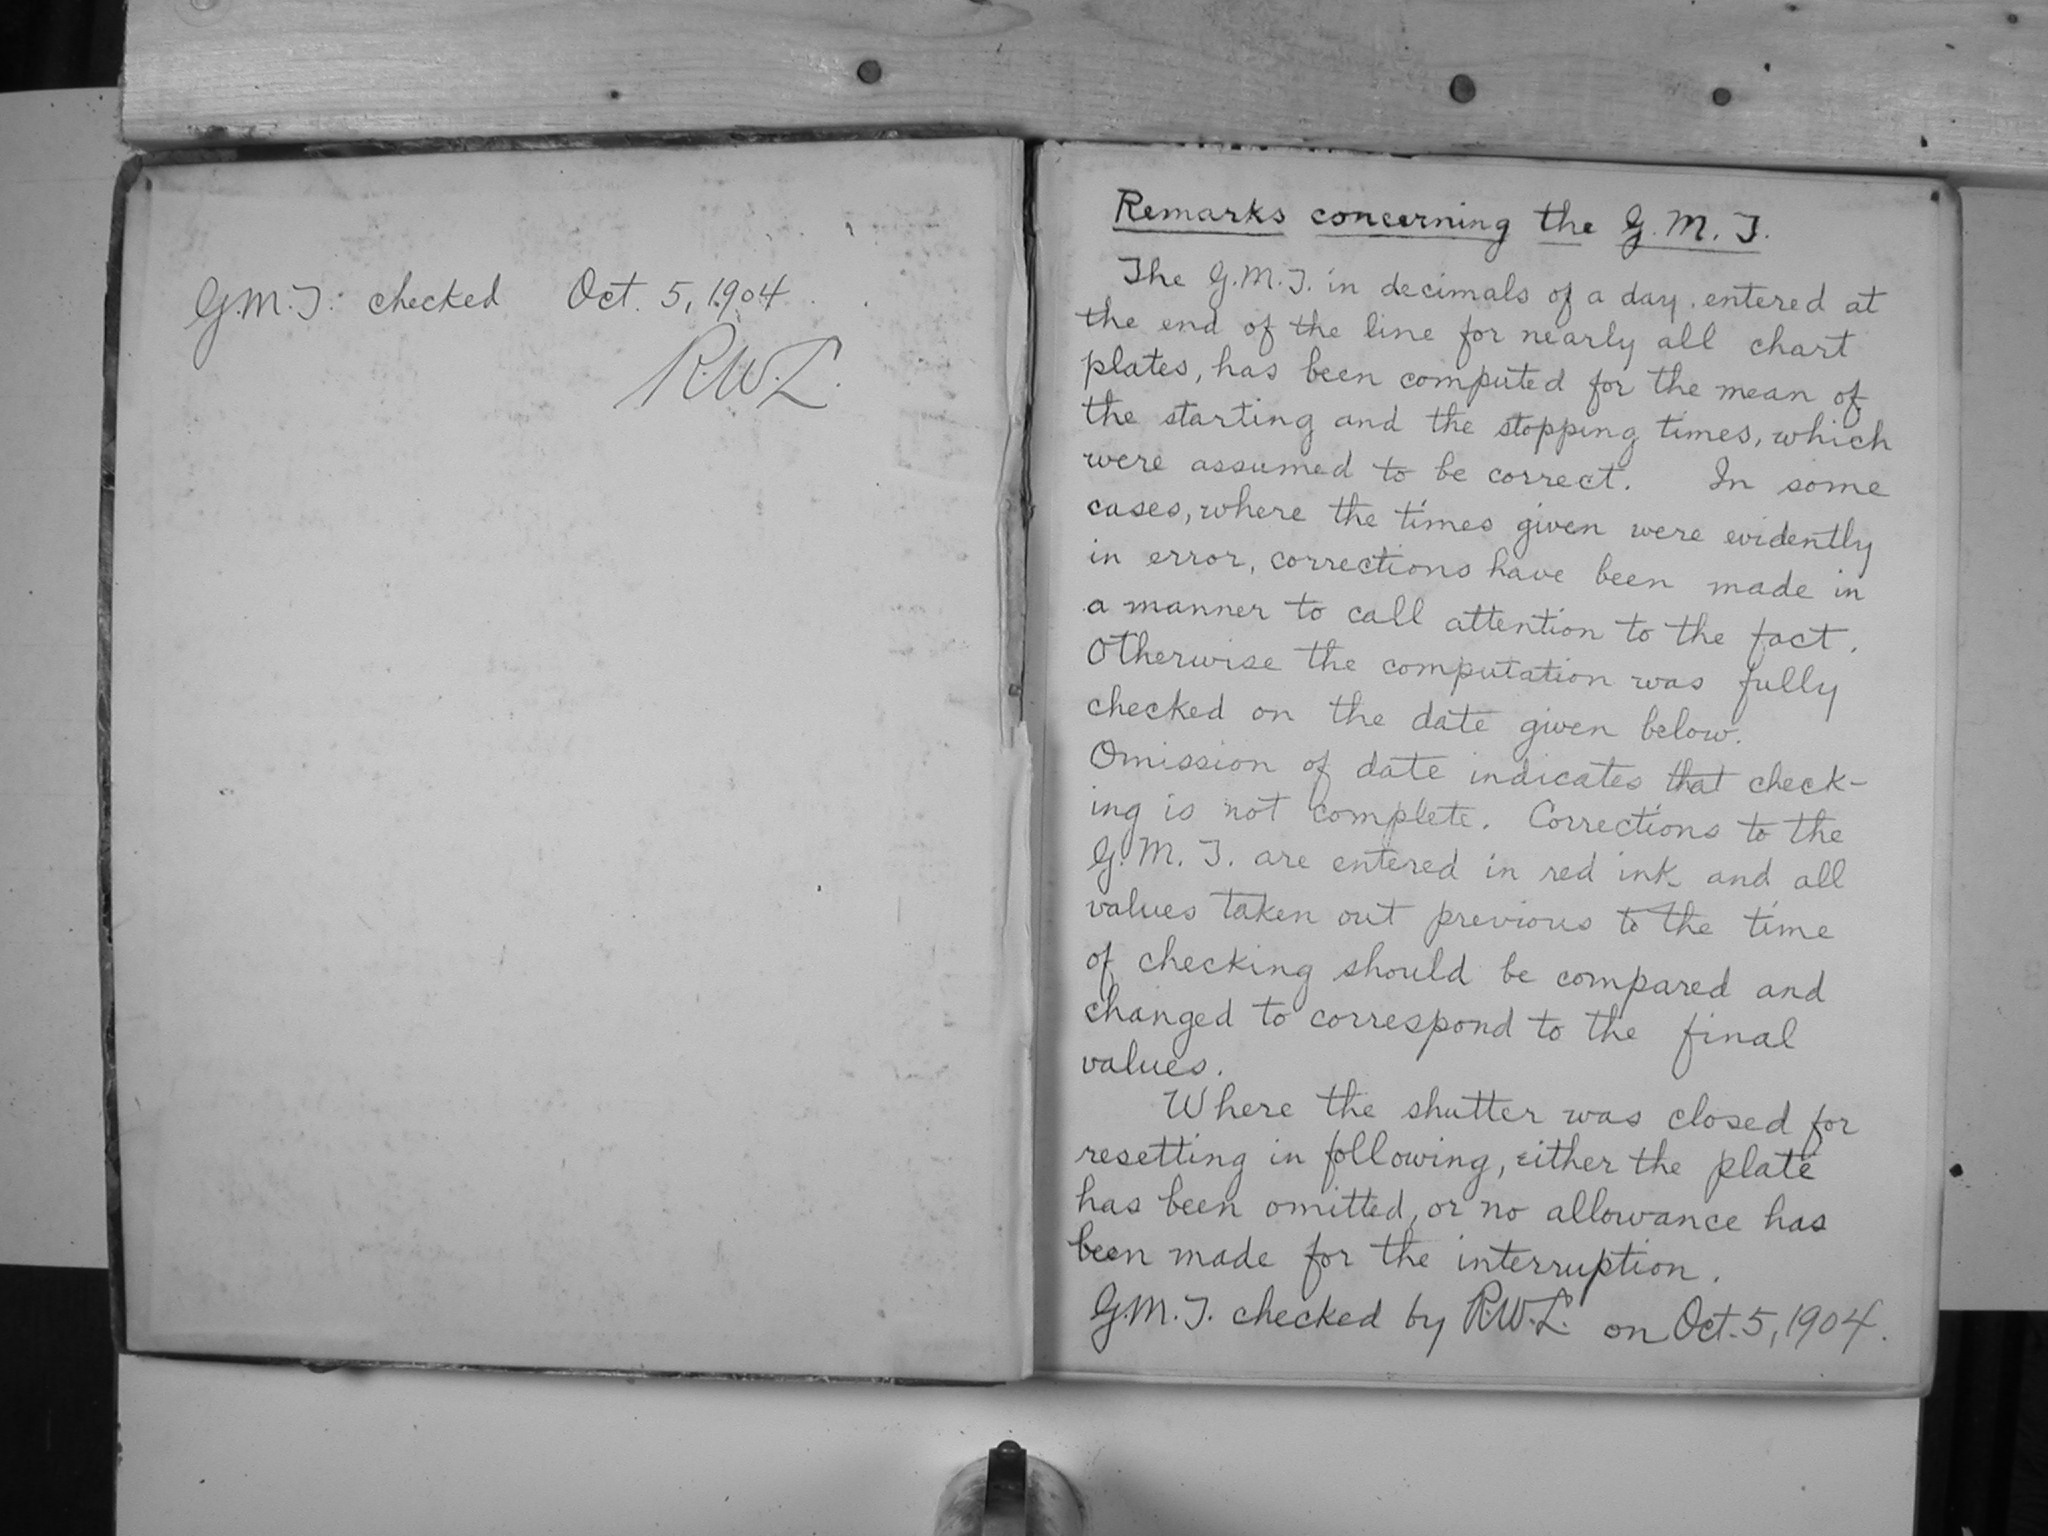 G.M.T. checked Oct. 5, 1904
R.W.L.
Remarks concerning the G.M.T.
The G.M.T. in decimals of a day, entered at
the end of the line for nearly all chart
plates, has been computed for the mean of
the starting and the stopping times, which
were assumed to be correct. In some
cases, where the times given were evidently
in error, corrections have been made in
a manner to call attention to the fact.
Otherwise the computation was fully
checked on the date given below.
Omission of date indicates that check-
ing is not complete. Corrections to the
G.M.T. are entered in red ink and all
values taken out previous to the time
of checking should be compared and
changed to correspond to the final
values.
Where the shutter was closed for
resetting in following, either the plate
has been omitted, or no allowance has
been made for the interruption.
G.M.T. checked by R.W.L. on Oct. 5, 1904.